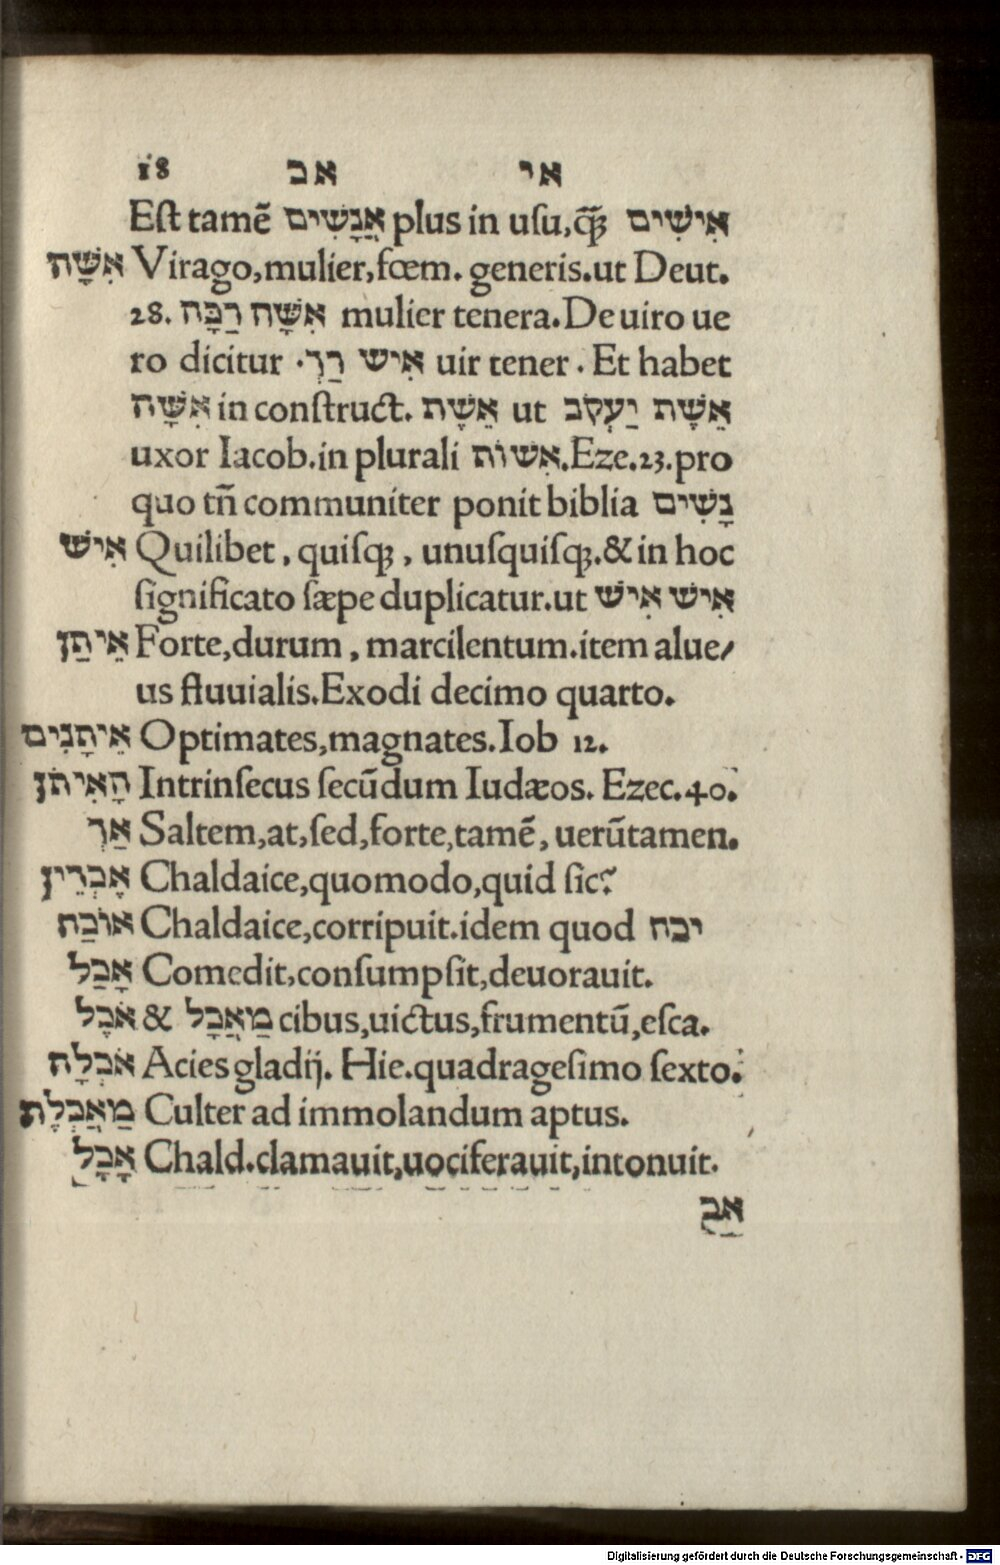 18 אכ אי
Est tamē אֲנָשִׁים plus in usu,q̃ꝫ אִישִׁים
אִשָּׁה Virago,mulier,fœm. generis.ut Deut.
28. אִשָּׁה רַכָּה mulier tenera. De uiro ue
ro dicitur אִישׁ רַךְ. uir tener. Et habet
אִשָּׁה in construct. אֵשֶׁת ut אֵשֶׁת יַעְקֹב
uxor Iacob.in plurali אִשּׁוֹת.Eze.23.pro
quo tñ communiter ponit biblia נָשִׁים
אִישׁ Quilibet, quisqꝫ, unusquisqꝫ.& in hoc
significato sæpe duplicatur.ut אִישׁ אִישׁ
אֵיתַן Forte,durum, marcilentum.item alue/
us fluuialis.Exodi decimo quarto.
אֵיתָנִים Optimates,magnates.Iob 12.
הָאִיתֹן Intrinsecus secūdum Iudæos. Ezec.40.
אַךְ Saltem,at,sed,forte,tamē, uerūtamen.
אָכְרֵין Chaldaice,quomodo,quid sic?
אוֹכַח Chaldaice,corripuit.idem quod יכח
אָכַל Comedit,consumpsit,deuorauit.
אֹכֶל & מַאֲכָל cibus,uictus,frumentū,esca.
אֹכְלָה Acies gladij. Hie.quadragesimo sexto.
מַאֲכְלֶת Culter ad immolandum aptus.
אָכָל Chald.clamauit,uociferauit,intonuit.
אַכ